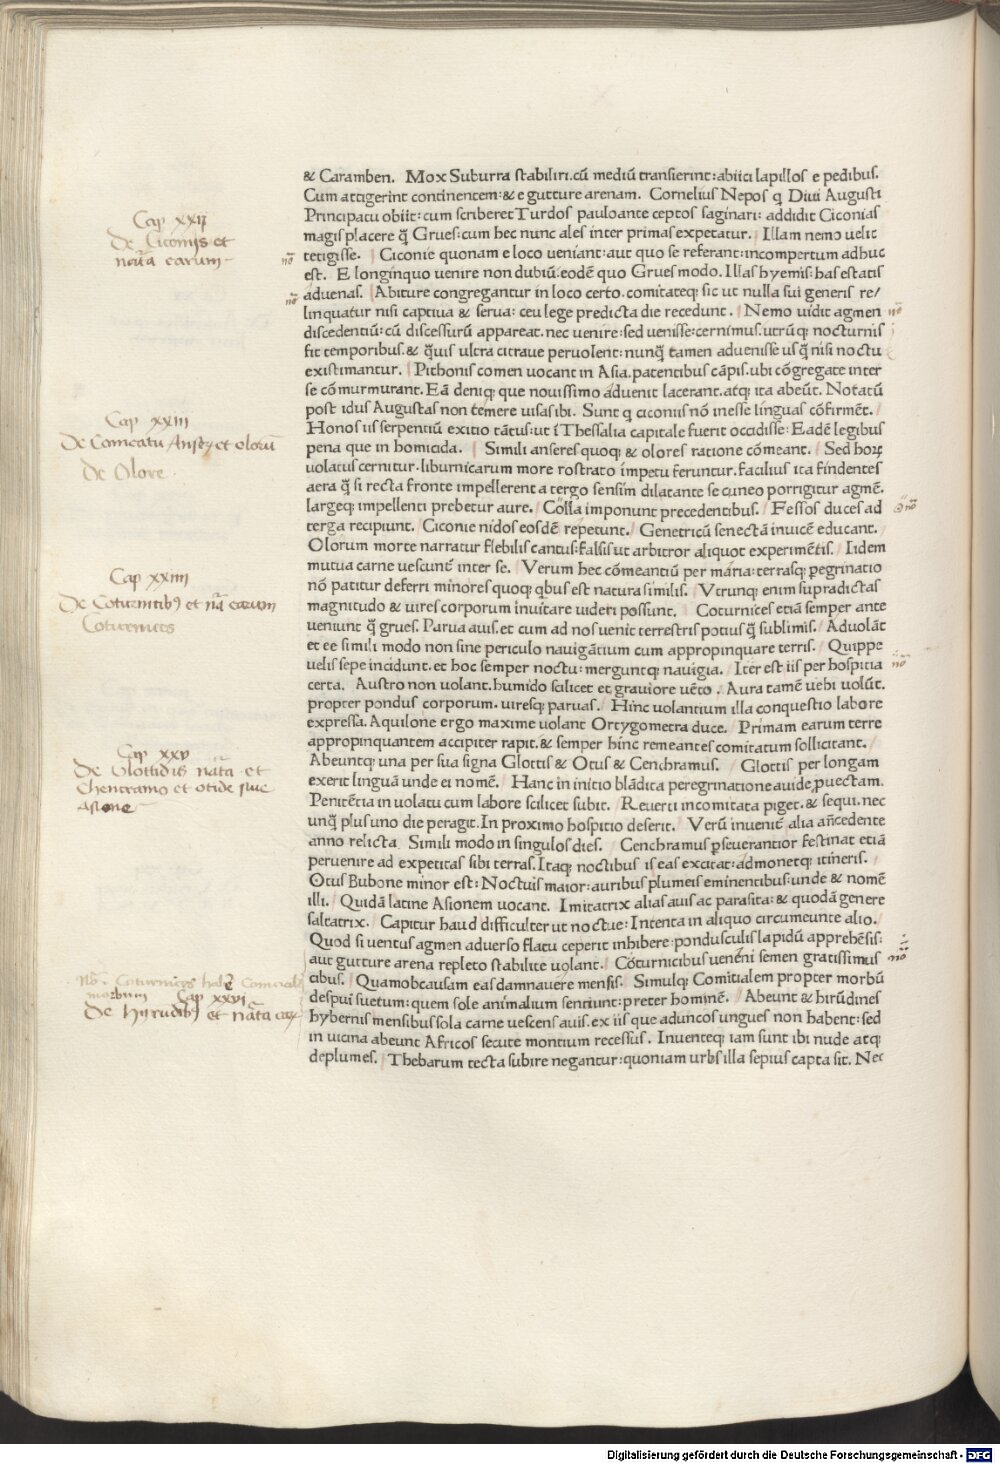 & Caramben. Mox Suburra stabiliri. cū mediū transierint: abiici lapillos e pedibus.
Cum attigerint continentem: & e gutture arenam. Cornelius Nepos q Diui Augusti
Principatu obiit: cum scriberet Turdos pauloante ceptos saginari: addidit Ciconias
magis placere q̃ Grues: cum hec nunc ales inter primas expetatur. Illam nemo uelit
tetigisse. Ciconie quonam e loco ueniant: aut quo se referant: incompertum adhuc
est. E longinquo uenire non dubiū. eodē quo Grues modo. Illas hyemis: has estatis
aduenas. Abiture congregantur in loco certo. comitateq; sic ut nulla sui generis re/
linquatur nisi captiua & serua: ceu lege predicta die recedunt. Nemo uidit agmen
discedentiū: cū discessurū appareat. nec uenire: sed uenisse: cernimus. utrūq; nocturnis
fit temporibus. & q̃uis ultra citraue peruolent: nunq̃ tamen aduenisse usq̃ nisi noctu
existimantur. Pithonis comen uocant in Asia. patentibus cāpis. ubi cōgregate inter
se cōmurmurant. Eā deniq; que nouissimo aduenit lacerant. atq; ita abeūt. Notatū
post idus Augustas non temere uisas ibi. Sunt q ciconiis nō inesse linguas cōfirmēt.
Honos iis serpentiū exitio tātus: ut ī Thessalia capitale fuerit occidisse: Eadē legibus
pena que in homicida. Simili anseres quoq; & olores ratione cōmeant. Sed hoꝝ
uolatus cernitur. liburnicarum more rostrato impetu feruntur. facilius ita findentes
aera q̃ si recta fronte impellerent a tergo sensim dilatante se cuneo porrigitur agmē.
largeq; impellenti prebetur aure. Colla imponunt precedentibus. Fessos duces ad
terga recipiunt. Ciconie nidos eosdē repetunt. Genetricū senectā inuicē educant.
Olorum morte narratur flebilis cantus: falsis ut arbitror aliquot experimētis. Iidem
mutua carne uescunt̄ inter se. Verum hec cōmeantiū per maria: terrasq; pegrinatio
nō patitur deferri minores quoq; qbus est natura similis. Vtrunq; enim supradictas
magnitudo & uires corporum inuitare uideri possunt. Coturnices etiā semper ante
ueniunt q̃ grues. Parua auis. et cum ad nos uenit terrestris potius q̃ sublimis. Aduolāt
et ee simili modo non sine periculo nauigātium cum appropinquare terris. Quippe
uelis sepe incidunt. et hoc semper noctu: merguntq; nauigia. Iter est iis per hospitia
certa. Austro non uolant. humido scilicet et grauiore uēto. Aura tamē uehi uolūt.
propter pondus corporum. uiresq; paruas. Hinc uolantium illa conquestio labore
expressa. Aquilone ergo maxime uolant Ortygometra duce. Primam earum terre
appropinquantem accipiter rapit. & semper hinc remeantes comitatum sollicitant.
Abeuntq; una per sua signa Glottis & Otus & Cenchramus. Glottis per longam
exerit linguā unde ei nomē. Hanc in initio blādita peregrinatione auide puectam.
Penitētia in uolatu cum labore scilicet subit. Reuerti incomitata piget. & sequi. nec
unq̃ plus uno die peragit. In proximo hospitio deserit. Verū inuenit̄ alia añcedente
anno relicta. Simili modo in singulos dies. Cenchramus pseuerantior festinat etiā
peruenire ad expetitas sibi terras. Itaq; noctibus is eas excitat: admonetq; itineris.
Otus Bubone minor est: Noctuis maior: auribus plumeis eminentibus: unde & nomē
illi. Quidā latine Asionem uocant. Imitatrix alias auis ac parasita: & quodā genere
saltatrix. Capitur haud difficulter ut noctue: Intenta in aliquo circumeunte alio.
Quod si uentus agmen aduerso flatu ceperit inhibere: pondusculis lapidū apprehēsis:
aut gutture arena repleto stabilite uolant. Coturnicibus ueneni semen gratissimus
cibus. Quamobcausam eas damnauere mensis. Simulq; Comitialem propter morbū
despui suetum: quem sole animalium sentiunt: preter hominē. Abeunt & hirūdines
hybernis mensibus sola carne uescens auis. ex iis que aduncos ungues non habent: sed
in uicina abeunt Africos secute montium recessus. Inuenteq; iam sunt ibi nude atq;
deplumes. Thebarum tecta subire negantur: quoniam urbs illa sepius capta sit. Nec
Cap xxij
De Ciconijs et
nat̃a earum
Cap xxiij
De Olore
Cap xxiiij
De Coturnitib9 et nā earum
Coturnices
Cap xxv
De Glottidis nat̃a et
Chencramo et otide siue
Asione
Cap xxvi
De hyrudib9 et nat̃a
Digitalisierung gefördert durch die Deutsche Forschungsgemeinschaft - DFG